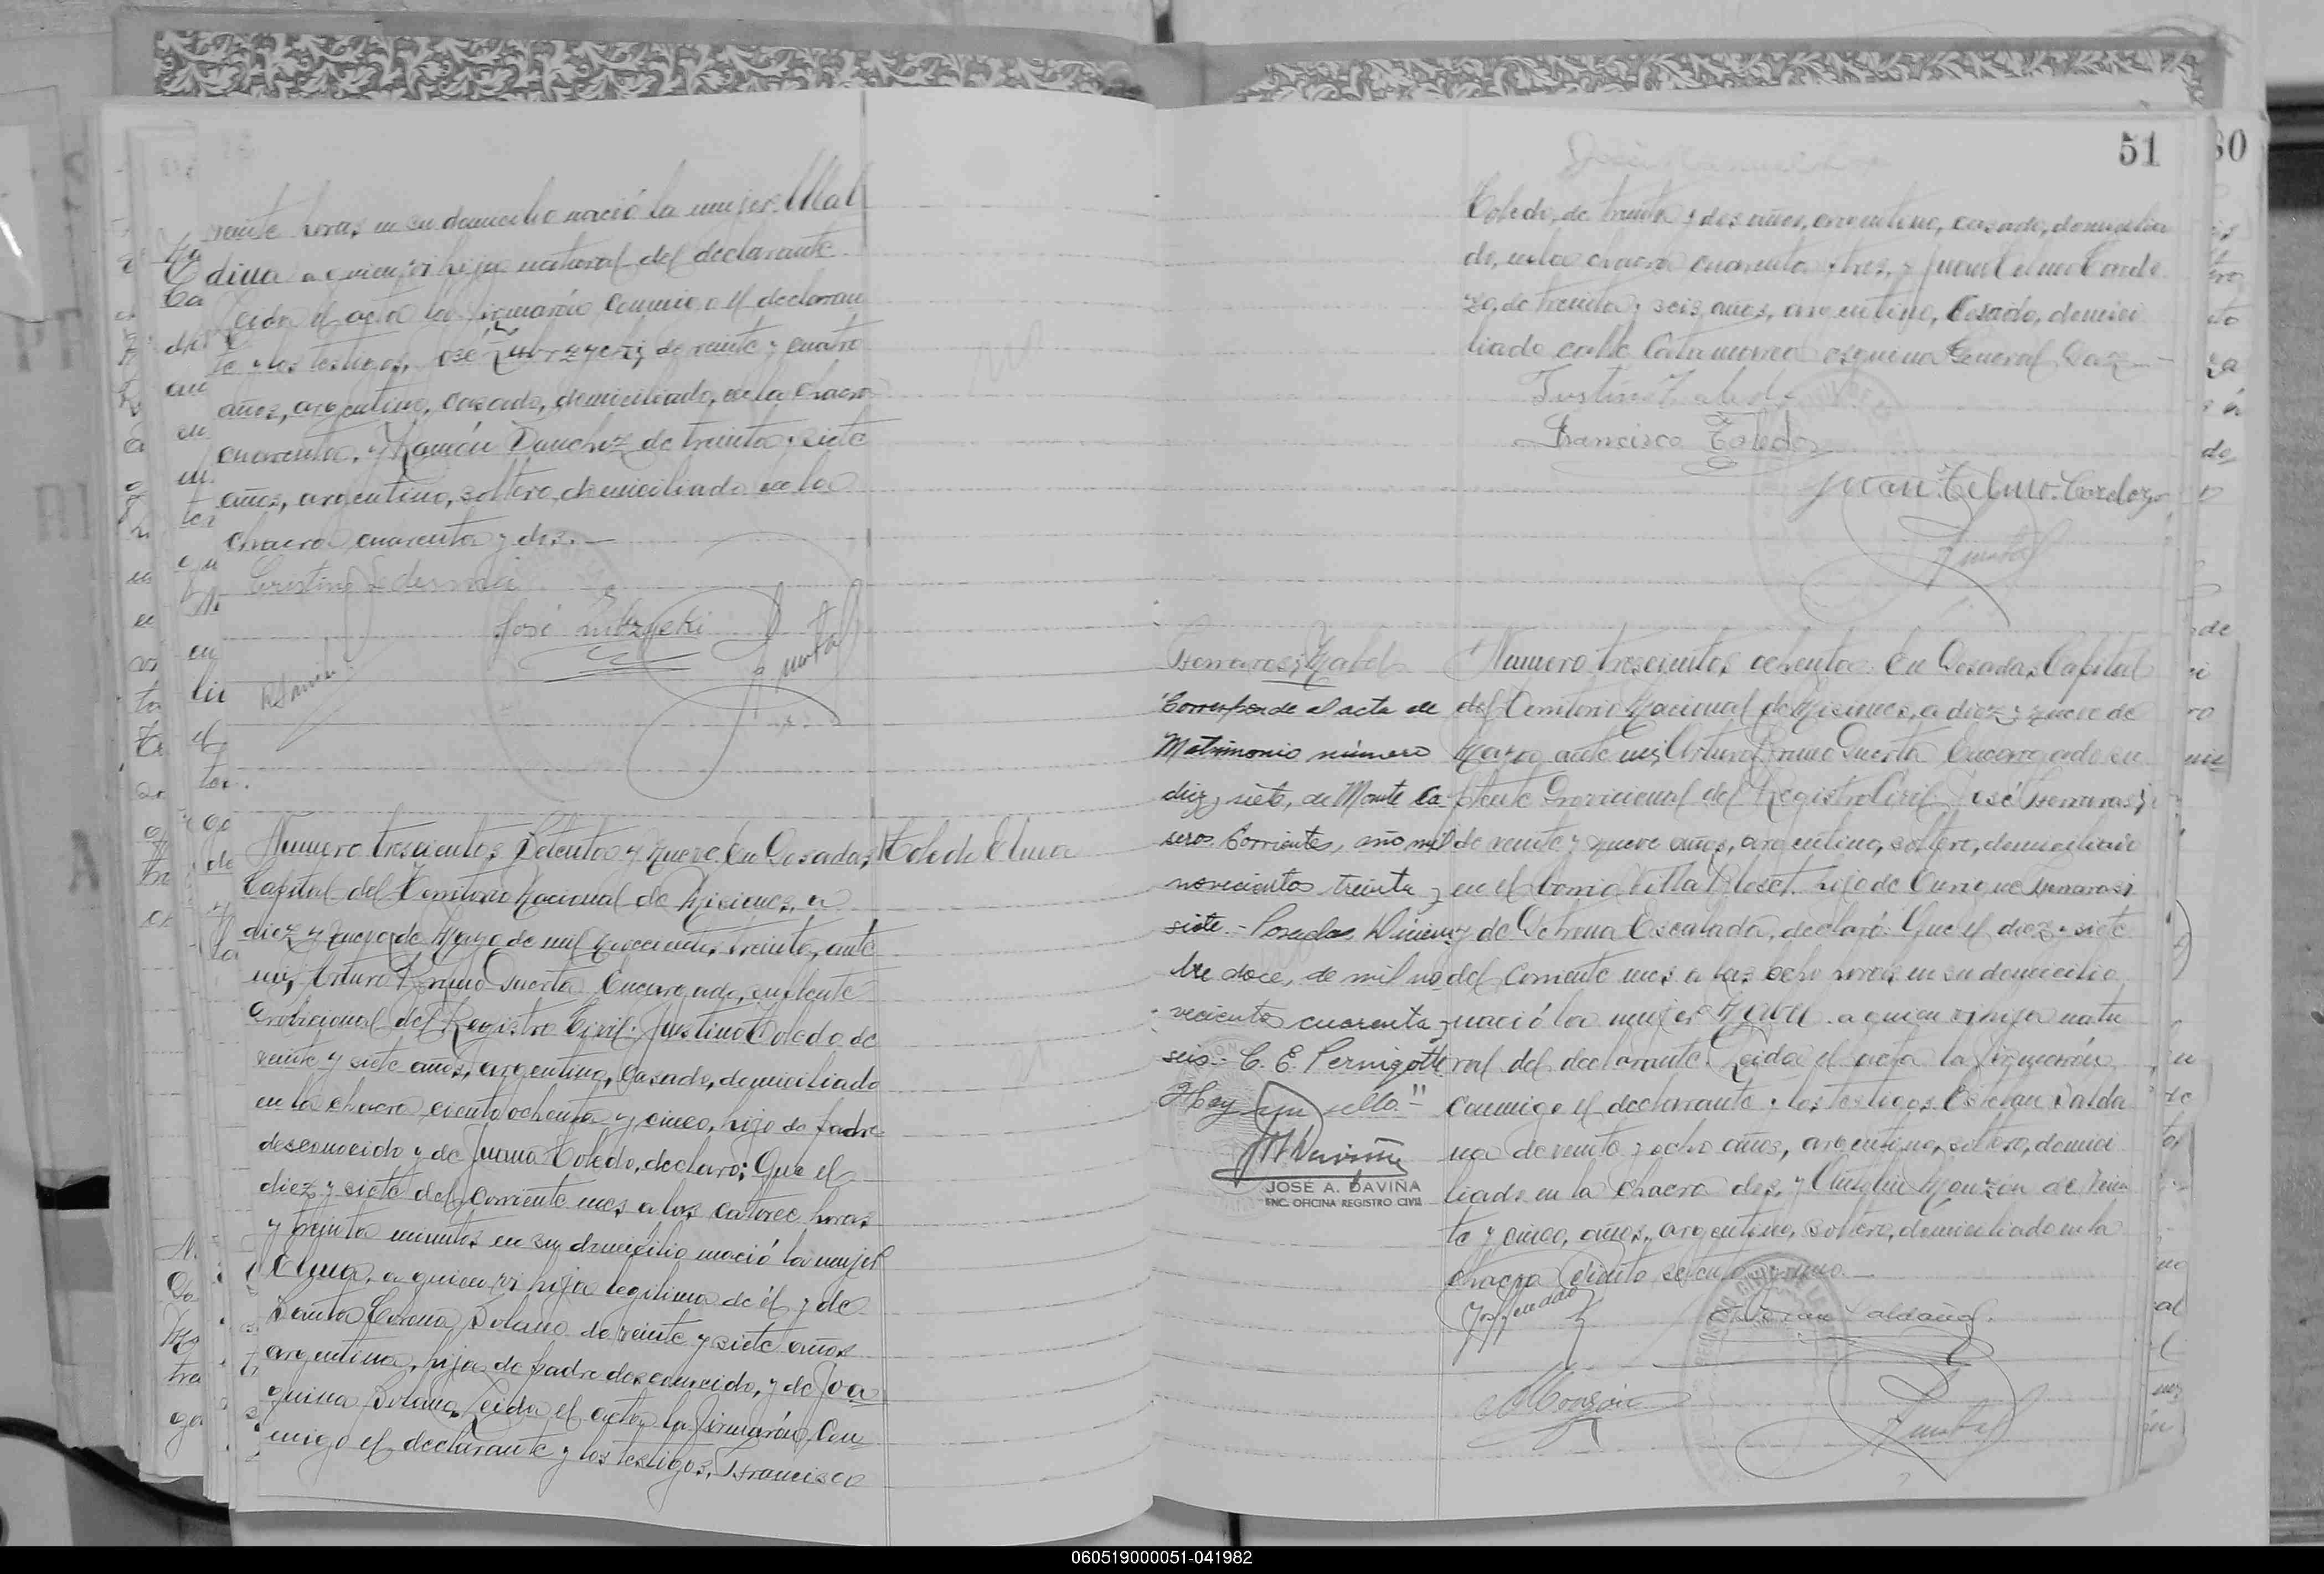 veinte horas en su domicilio nació la mujer Mal
dina a quien vi hija natural del declarante.
Leida el acta la firmarón conmigo el declaran
te y los testigos, José de veinte y cuatro
años, argentino, casado, domiciliado, en la chacra
cuarenta, y Ramón Sanchez de treinta y siete
años, argentino, soltero, domiciliado en la
chacra cuarenta y dos.—
Cristino Ledesma
José Lubzyeki
Numero trescientos Setenta y Nueve. En Posadas,
Capital del Territorio Nacional de Misiones, a
diez y nueve de Mayo de mil novecientos treinta, ante
mi, Arturo Bruno Puerta Encargado, suplente
Provicional del Registro Civil. Justino Toledo de
veinte y siete años, argentino, Casado, domiciliado
en la chacra ciento ochenta y cinco, hijo de padre
desconocido y de Juana Toledo, declaro: Que el
diez y siete del corriente mes a las catorce horas
y treinta minutos en su domicilio nació la mujer
Elma, a quien vi hija legitima de él y de
Santa Corona Solano de veinte y siete años
argentina, hija de padre desconocido, y de Joa
quina Solano. Leida el acta la firmarón con
migo el declarante y los testigos, Francisco
Toledo Elma
51
Toledo, de treinta y dos años, argentino, casado, domicilia
do, en la chacra cuarenta y tres, y Juan Telmo Cardo
zo, de treinta y seis años, argentino, Casado, domici
liado calle Catamarca esquina General Paz.—
Justino Toledo
Francisco Toledo
Juan Telmo Cardozo
Ferrarasi, Mabel
Corresponde el acta de
Matrimonio número
diez y siete, de Monte Ca
seros Corrientes, año mil
novecientos treinta y
siete.- Posadas, Diciem
bre doce, de mil no
vecientos cuarenta y
seis.- C. E. Pernigotti
Hay un sello."
JOSÉ A. DAVIÑA
ENC. OFICINA REGISTRO CIVIL
Numero trescientos ochenta. En Posadas, Capital
del Territorio Nacional de Misiones, a diez y nueve de
Mayo, ante mi, Arturo Bruno Puerta Encargado su
plente Provicional del Registro Civil José Ferrarasi,
de veinte y nueve años, argentino, soltero, domiciliado
en el barrio Villa Blosset. hijo de Enrique Ferrarasi
y de Petrona Escalada, declaró: Que el diez y siete
del corriente mes a las ocho horas en su domicilio
nació la mujer Mabel a quien vi hija natu
ral del declarante. Leida el acta la firmarón
conmigo el declarante y los testigos Esteban Salda
ña de veinte y ocho años, argentino, soltero, domici
liado en la chacra dos, y Monzón de vein
te y cinco, años, argentino, soltero, domiciliado en la
chacra ciento setenta y uno.—
Esteban Saldaña.
Monzón
060519000051-041982